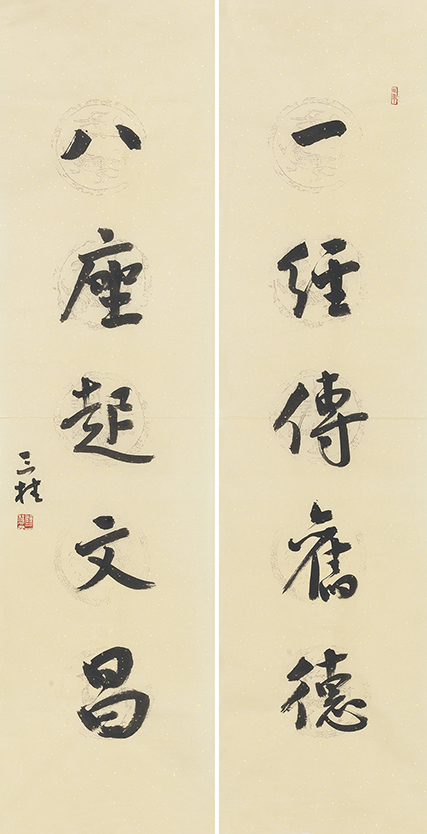 一經傳舊德
八座起文昌
三桂